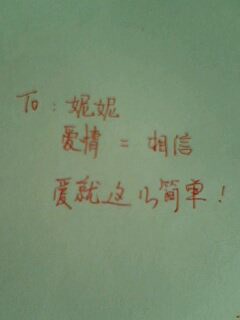 To：妮妮
爱情 = 相信
爱就这么简单！